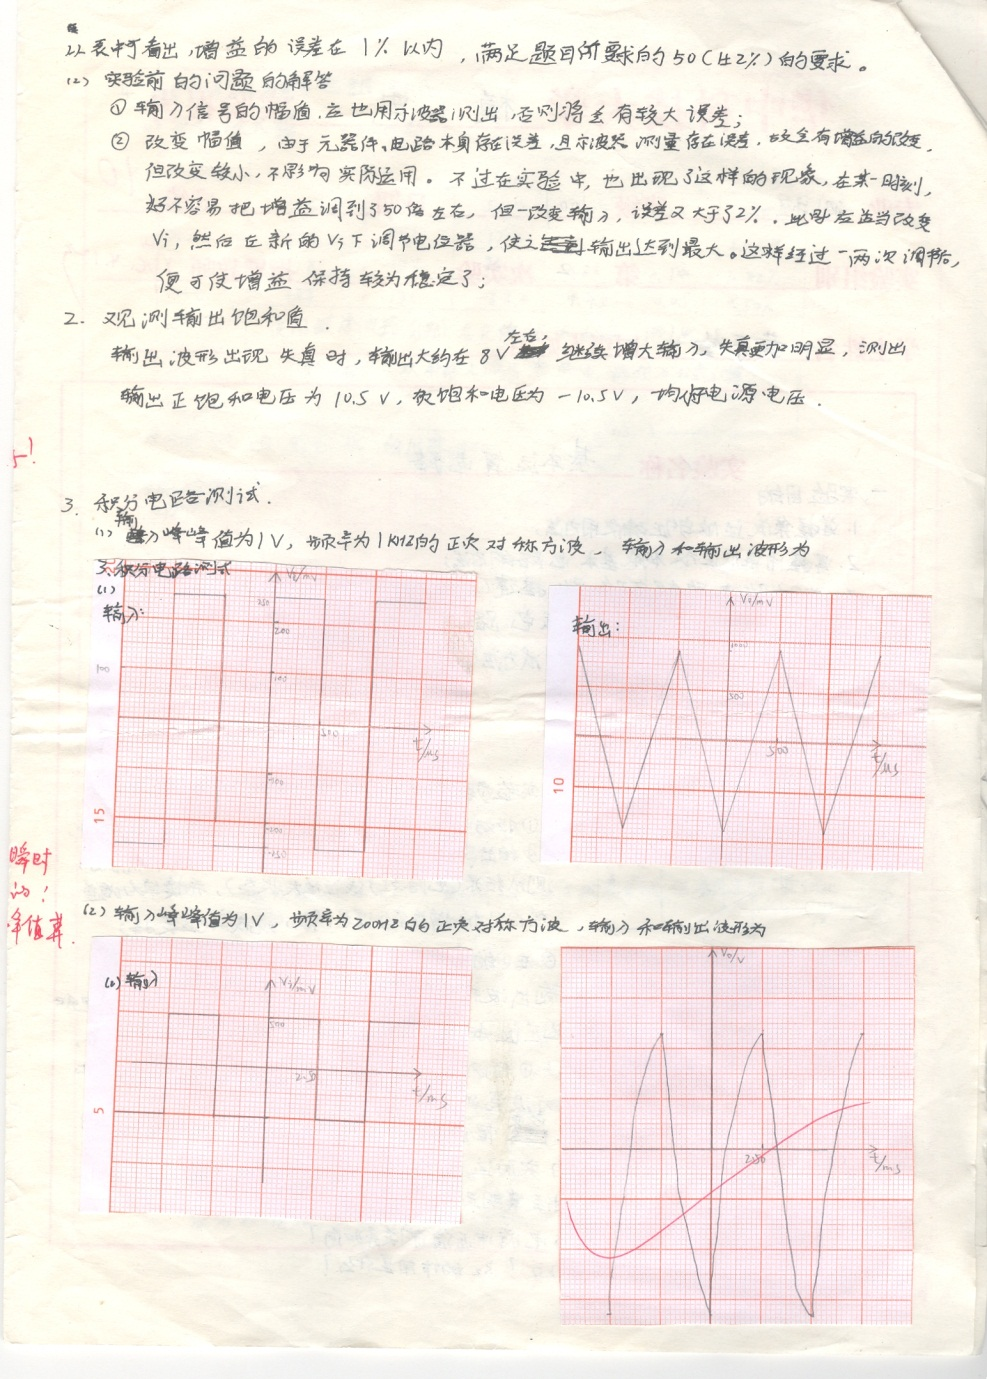 从表中可看出,增益的误差在1%以内,满足题目所要求的50(±2%)的要求。
(2) 实验前的问题的解答
① 输入信号的幅值应也用示波器测出,否则将会有较大误差;
② 改变幅值,由于元器件、电路本身存在误差,且示波器测量存在误差,故会有增益的改变,
但改变较小,不影响实际运用。不过在实验中,也出现了这样的现象,在某一时刻,
好不容易把增益调到了50倍左右,但一改变输入,误差又大于了2%。此时应当改变
Vi,然后在新的Vi下调节电位器,使之输出达到最大。这样经过一两次调节后,
便可使增益保持较为稳定了;
2. 观测输出饱和值.
输出波形出现失真时,输出大约在8V左右;继续增大输入,失真更加明显,测出
输出正饱和电压为10.5V,负饱和电压为-10.5V,均低于电源电压.
3. 积分电路测试.
(1) 输入峰峰值为1V,频率为1KHZ的正负对称方波,输入和输出波形为
3.积分电路测试
(1)
输入:
Vi/mV
250
200
100
500
t/μs
15
输出:
Vo/mV
1000
500
500
t/μs
10
瞬时
的!
峰值算.
(2) 输入峰峰值为1V,频率为200HZ的正负对称方波,输入和输出波形为
(2)输入
Vi/mV
500
2.50
t/ms
5
Vo/V
2.50
t/ms